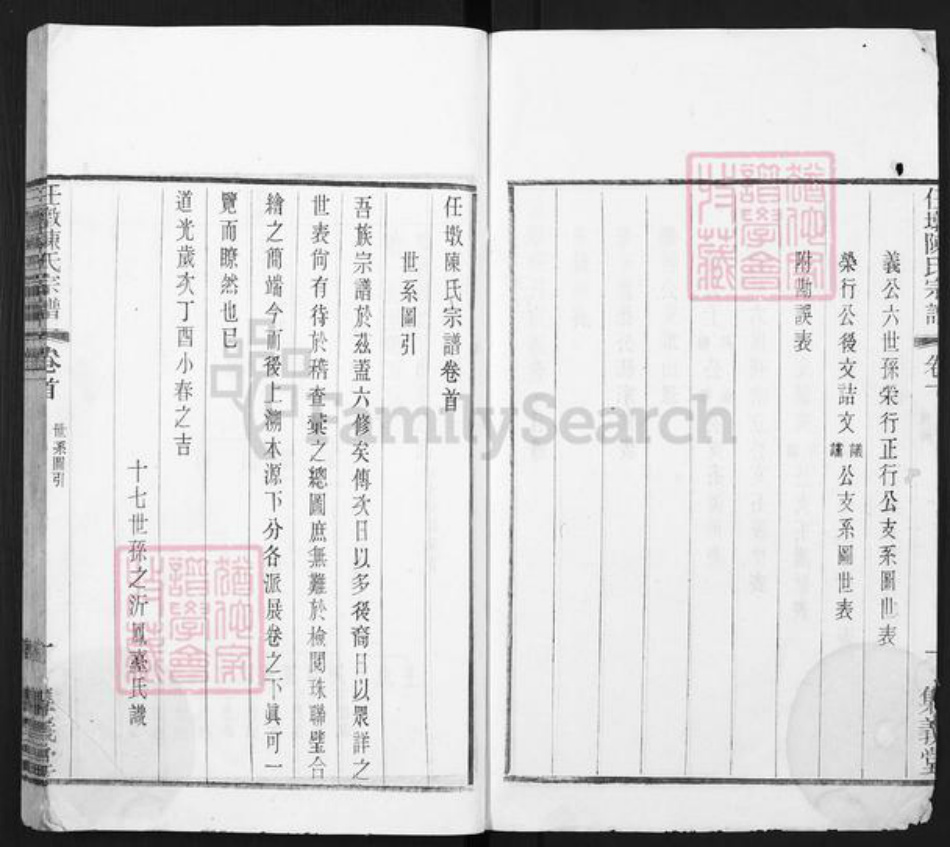 義公六世孫榮行正行公支系圖世表
榮行公後文詰文議謹公支系圖世表
附勘誤表
任墩陳氏宗譜
集義堂
任墩陳氏宗譜卷首
世系圖引
吾族宗譜於茲蓋六修矣傳次日以多後裔日以眾詳之
世表尙有待於稽查彙之總圖庶無難於檢閱珠聯璧合
繪之簡端今而後上溯木源下分各派展卷之下眞可一
覽而瞭然也已
道光歲次丁酉小春之吉
十七世孫之沂鳳臺氏識
任墩陳氏宗譜
卷首
世系圖引
一
FamilySearch